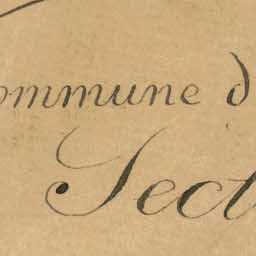 ommune d
Sect